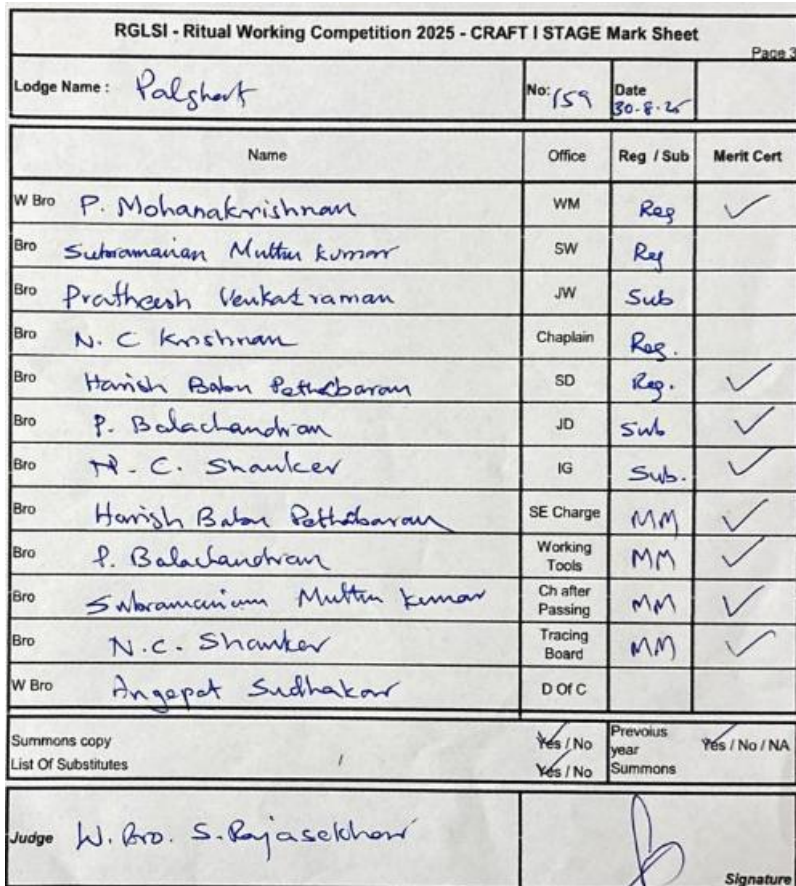 RGLSI - Ritual Working Competition 2025 - CRAFT I STAGE Mark Sheet
Page 3
Lodge Name : Palghat No: 159 Date 30-8-25
Name Office Reg / Sub Merit Cert
W Bro P. Mohanakrishnan WM Reg ✓
Bro Subramanian Muthu Kumar SW Reg
Bro Pratheesh Venkatraman JW Sub
Bro N. C Krishnan Chaplain Reg.
Bro Harish Babu SD Reg. ✓
Bro P. Balachandran JD Sub ✓
Bro N. C. Shanker IG Sub. ✓
Bro Harish Babu SE Charge MM ✓
Bro P. Balachandran Working Tools MM ✓
Bro Subramanium Muthu Kumar Ch after Passing MM ✓
Bro N.C. Shanker Tracing Board MM ✓
W Bro Angepat Sudhakar D Of C
Summons copy Yes / No Prevoius year Summons Yes / No / NA
List Of Substitutes Yes / No
Judge W. Bro. S. Rajasekhar
Signature